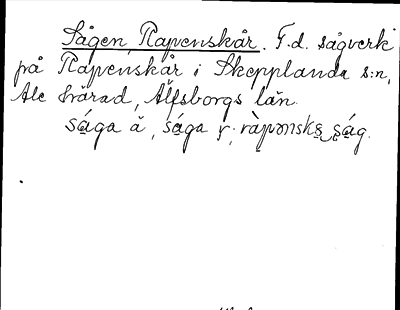 Sågen Rapenskår. F.d. sågverk
på Rapenskår i Skepplanda s:n,
Ale härad, Älfsborgs län.
såga ä, såga r. ràpənsks ság.